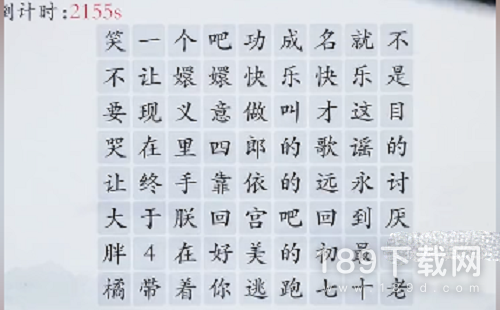 倒计时:2155s
笑一个吧功成名就不
不让嬛嬛快乐快乐是
要现义意做叫才这目
哭在里四郎的歌谣的
让终手靠依的远永讨
大于朕回宫吧回到厌
胖4在好美的初最
橘带着你逃跑七十老
189下载网